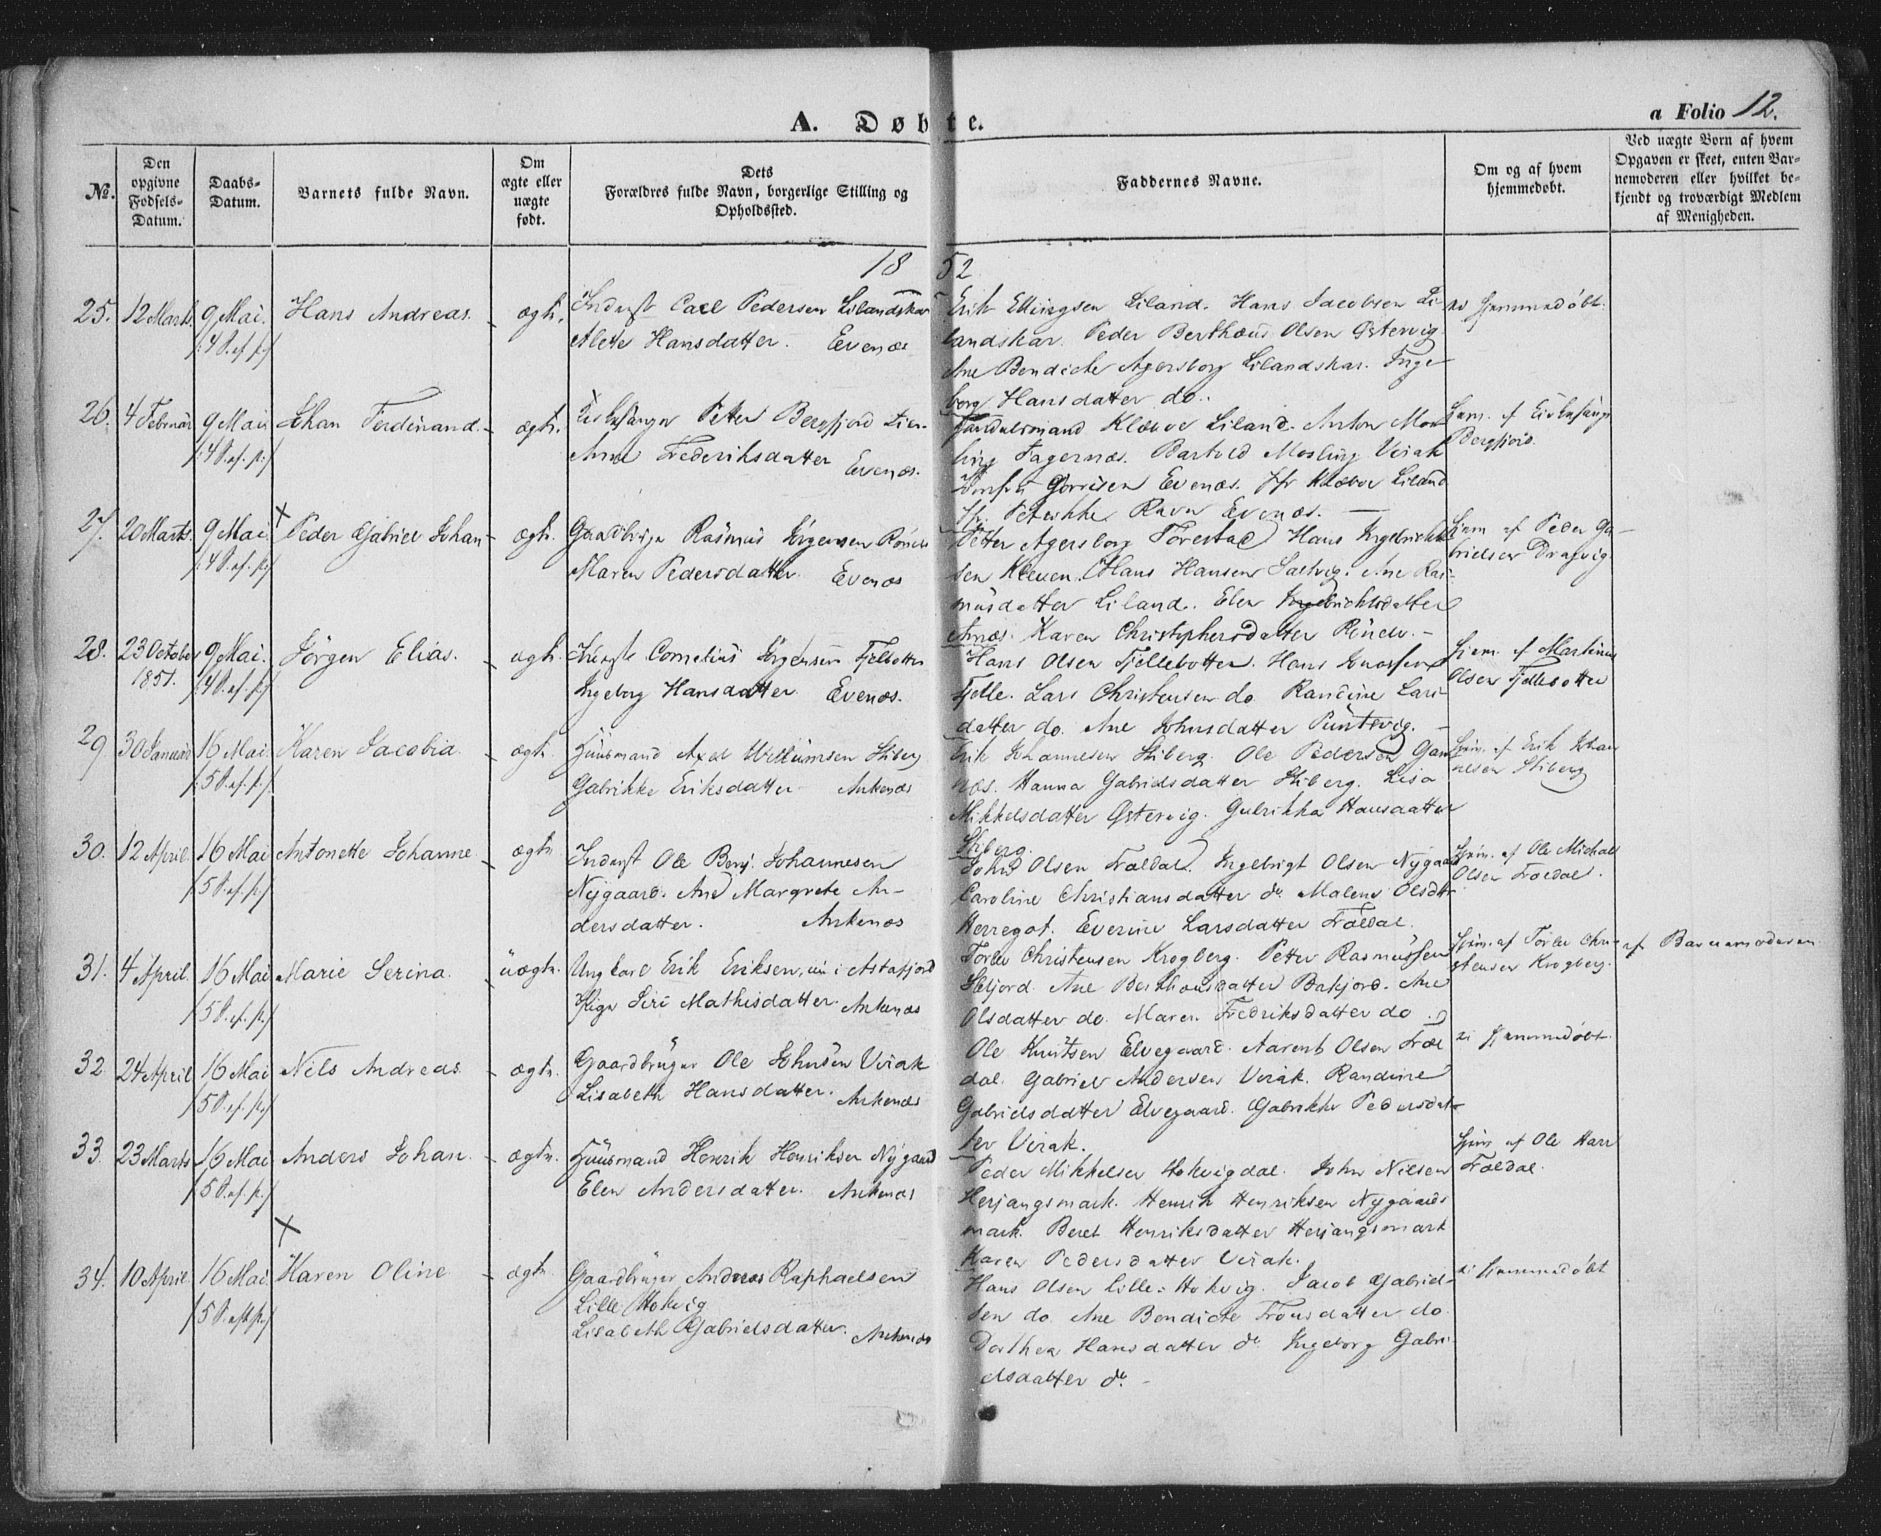 A. Døbte.
a Folio 12.
№.
Den opgivne Fødsels-Datum.
Daabs-Datum.
Barnets fulde Navn.
Om ægte eller uægte født.
Dets Forældres fulde Navn, borgerlige Stilling og Opholdssted.
Faddernes Navne.
Om og af hvem hjemmedøbt.
Ved uægte Børn af hvem Opgaven er skeet, enten Barnemoderen eller hvilket bekjendt og troværdigt Medlem af Menigheden.
1852
25. 12 Marts. 9 Mai. Hans Andreas. ægte.
/:4 S. ef. p:/
Inderst Carl Pedersen Lilandskar
Alette Hansdatter. Evenæs
Erik Ellingsen Liland. Hans Jacobsen Li-
landskar. Peder Berthæus Olsen Østervig
Ane Bendicte Agersborg Lilandskar. Inge-
borg Hansdatter do.
ei hjemmedøbt.
26. 4 Februar 9 Mai Johan Ferdinand. ægte.
/:4 S. ef. p:/
Peter Bergfjord Lien
Anne Frederiksdatter Evenæs.
Handelsmand Klæboe Liland. Anton Mos-
ling Fagernæs. Bartold Mosling Virak
Gørrisen Evenæs. Jfr Klæboe Liland
Jfr. Petrikke Ravn Evenæs.
Hjem. af
Bergfjord.
27. 20 Marts. 9 Mai. Peder Gabriel Johan ægte.
/:4 S. ef. p:/
Gaardbruger Rasmus Jørgensen
Maren Pedersdatter. Evenæs
Petter Agersborg Forestad Hans Ingebrigt-
sen Kleven. Hans Hansen Saltvig. Ane Ras-
musdatter Liland. Elen Ingebrichtsdatter
Annæs. Karen Christophersdatter
Hjem. af Peder Ga-
brielsen Dragvig
28. 23 October 1851. 9 Mai. Jörgen Elias. ægte.
/:4 S. ef. p:/
Inderste Cornelius Jørgensen Fjelbotten
Ingeborg Hansdatter. Evenæs.
Hans Olsen Fjellebotten. Hans Jonassen
Fjelle. Lars Christensen do. Randine Lars-
datter do. Ane Johnsdatter Puntsvig.
Hjem. af Martinus
Olsen Fjellebotten
29 30 Januar 16 Mai Karen Jacobia ægte
/:5 S. ef. p:/
Huusmand Axel Willumsen Stiberg
Gabrikke Eriksdatter. Ankenæs
Erik Johannesen Stiberg. Ole Pedersen
Hanna Gabrielsdatter Stiberg. Lisa
Mikkelsdatter Østervig. Gabrikka Hansdatter
Stiberg.
Hjem. af Erik Johan-
nesen Stiberg
30. 12 April. 16 Mai Antonette Johanne ægte
/:5 S. ef. p:/
Inderst Ole Benj. Johannesen
Nygaard. Ane Margrete An-
dersdatter. Ankenæs
John Olsen Trældal. Ingebrigt Olsen Nygaard
Caroline Christiansdatter do. Malene Olsdtr
Herregot. Everine Larsdatter Trældal.
Hjem. af Ole Michael
Olsen Trældal.
31. 4 April. 16 Mai Marie Serina. uægte.
/:5 S. ef. p:/
Ungkarl Erik Eriksen, nu i Astafjord
Pige Siri Mathisdatter. Ankenæs
Torber Christensen Krogberg. Petter Rasmussen
Skjord. Ane Berthousdatter Bakjord. Ane
Olsdatter do. Maren Fredriksdatter do.
Hjem. af Torber Chri-
stensen Krogberg.
af Barnemoderen
32. 24 April 16 Mai Nils Andreas. ægte.
/:5 S. ef. p:/
Gaardbruger Ole Johnsen Virak
Lisabeth Hansdatter. Ankenæs
Ole Knutsen Elvegaard. Aarent Olsen Træl-
dal. Gabriel Andersen Virak. Randine
Gabrielsdatter Elvegaard. Gabrikke Pedersdat-
ter Virak.
ei hjemmedøbt.
33. 23 Marts 16 Mai Anders Johan. ægte.
/:5 S. ef. p:/
Huusmand Henrik Henriksen Nygaard
Elen Andersdatter. Ankenæs
Peder Mikkelsen Hokvigdal. John Nilsen
Herjangsmark. Henrik Henriksen Nygaards
mark. Beret Henriksdatter Herjangsmark
Karen Pedersdatter Virak.
Hjem af Ole Hans
Trældal.
34. 10 April. 16 Mai Karen Oline ægte.
/:5 S. eft p:/
Gaardbruger Andreas Raphaelsen
Lille Hokvig
Lisabeth Gabrielsdatter. Ankenæs
Hans Olsen Lille-Hokvig. Jacob Gabriel-
sen do. Ane Bendicte Tronsdatter do.
Dorthea Hansdatter do Ingeborg Gabri-
elsdatter do.
ei hjemmedøbt